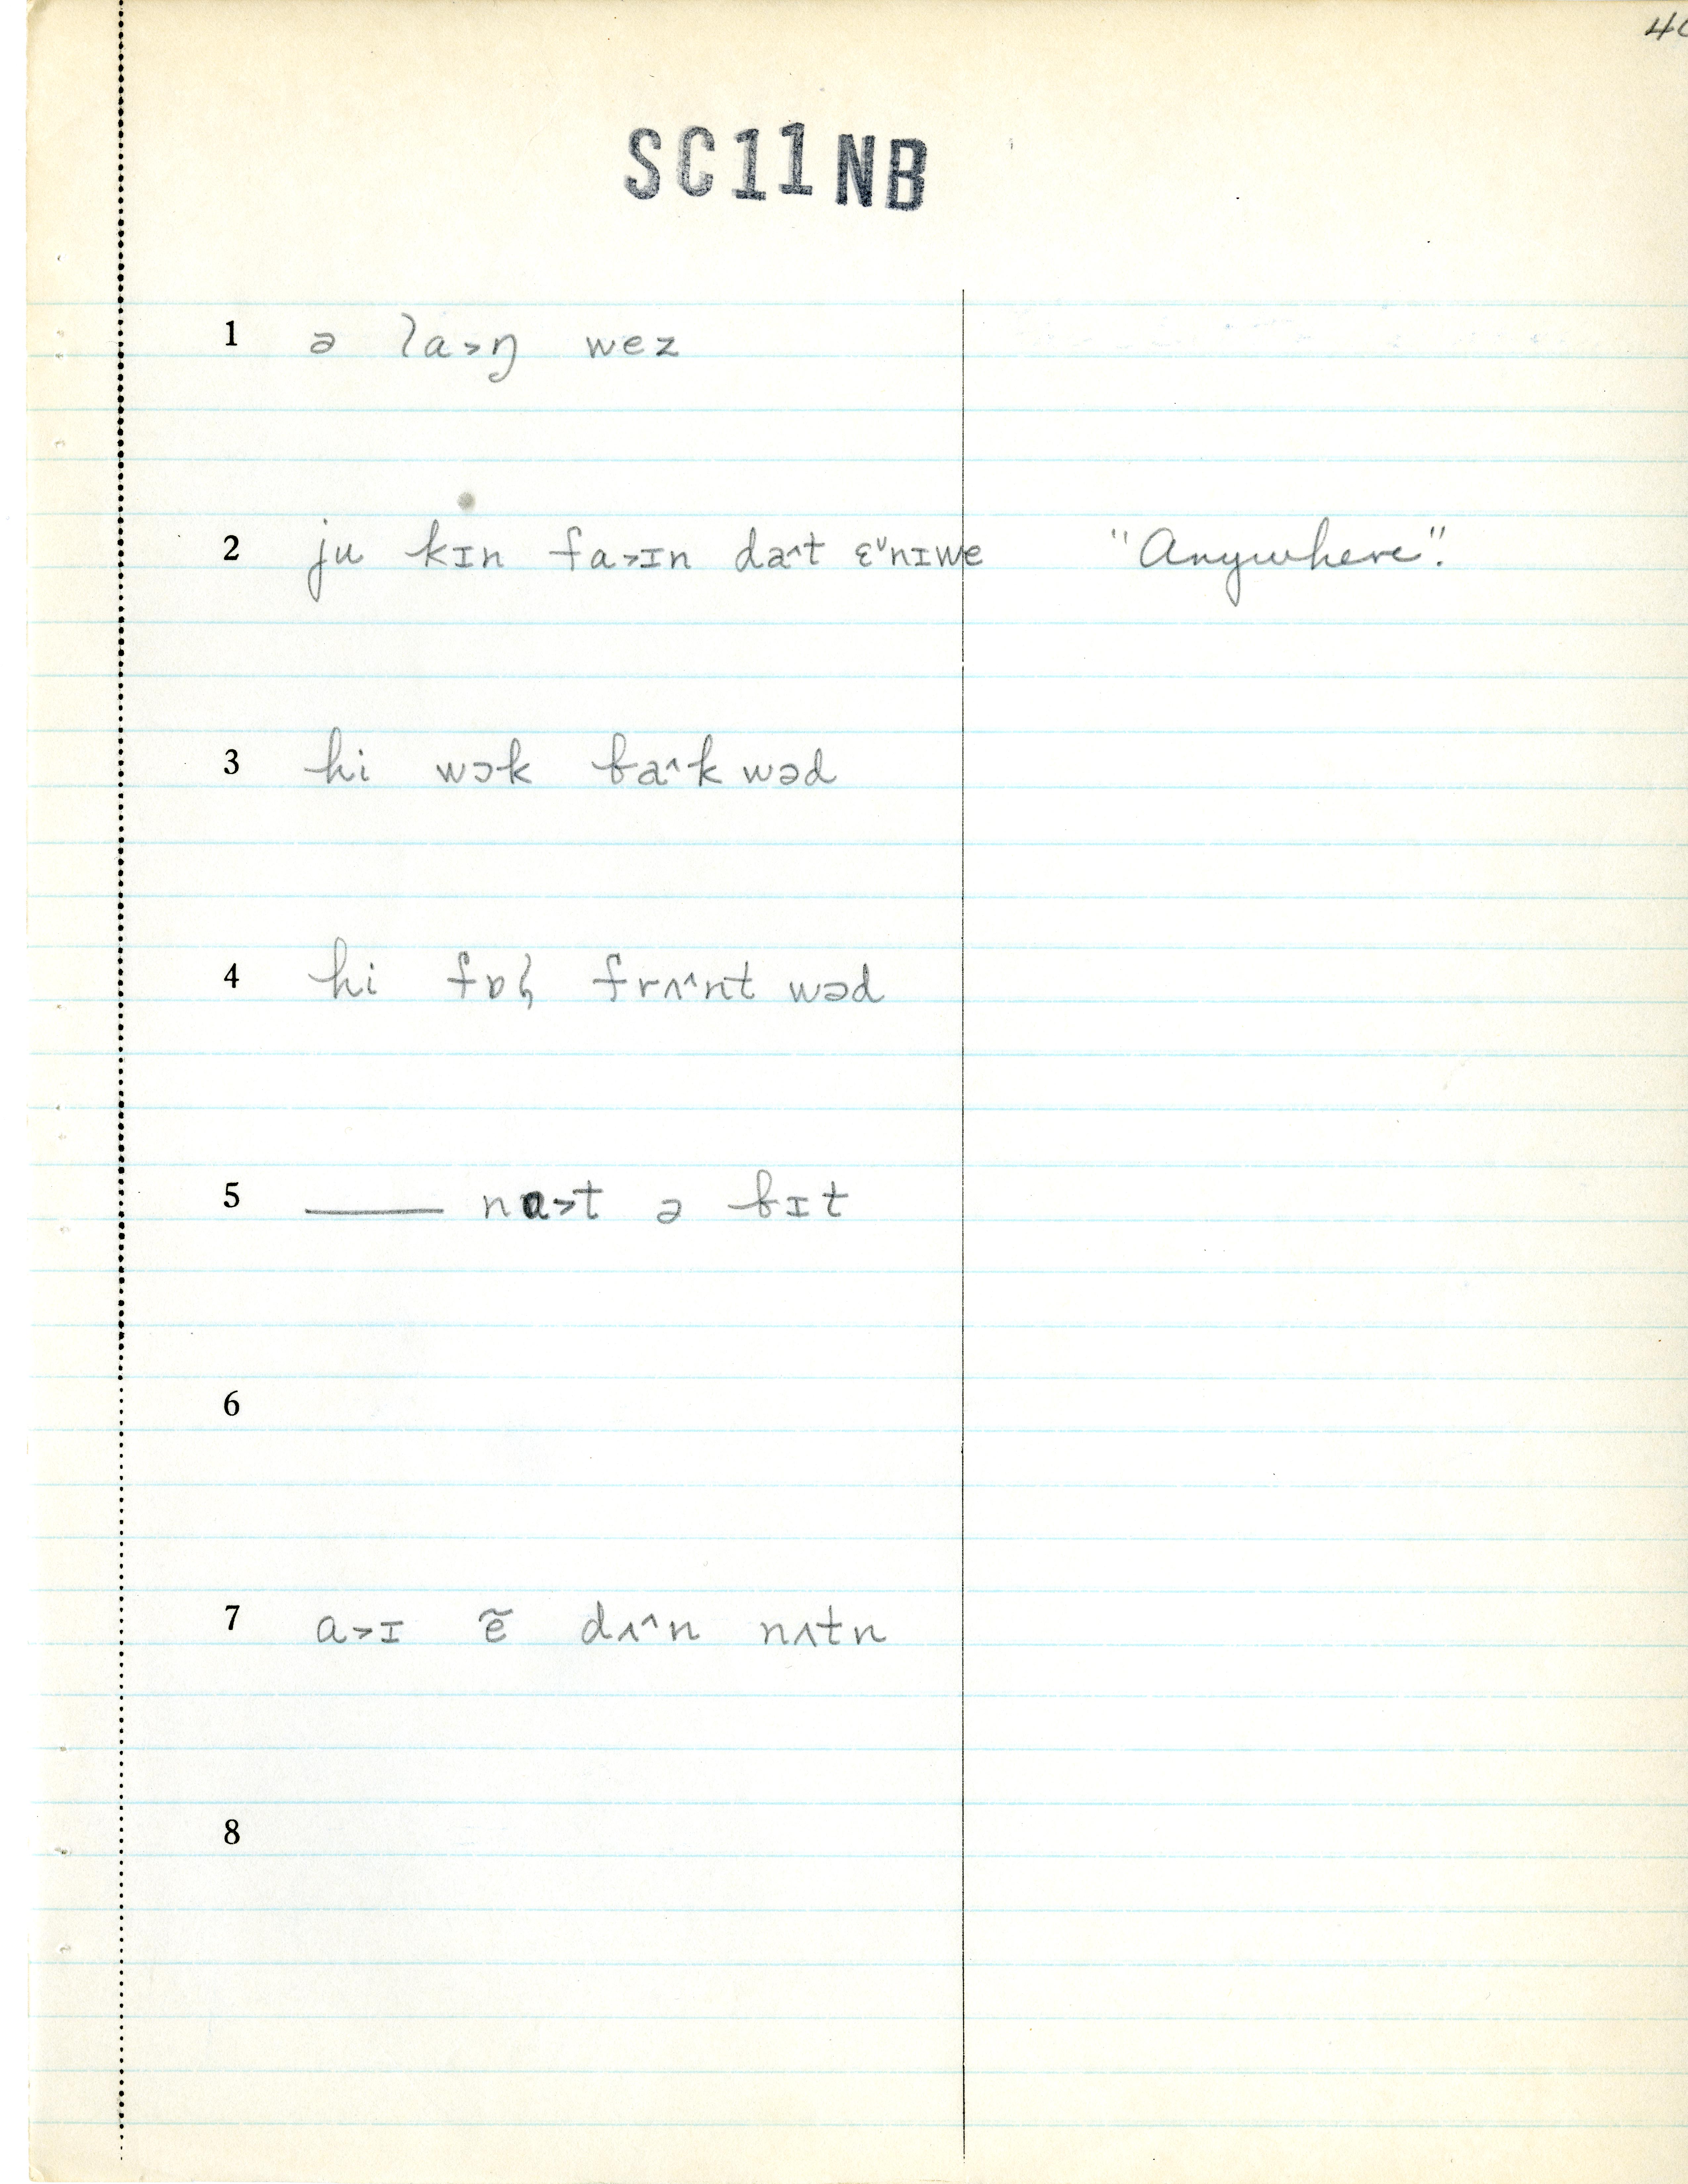 40
SC11NB
1 ə lɑ˃ŋ wez
2 ju kɪn fa˃ɪn da˄t ɛ˅nɪwe "Anywhere".
3 hi wɔk ba˄k wəd
4 hi frʌ˄nt wəd
5 —— nɑ˃t ə bɪt
6
7 a˃ɪ ẽ dʌ˄n nʌtn
8